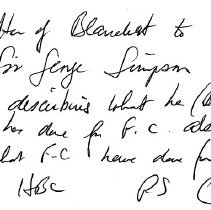 of Blanchet to
Sir George Simpson
describing what he (
has done for F.C.
F-C have done for
HBC PS (